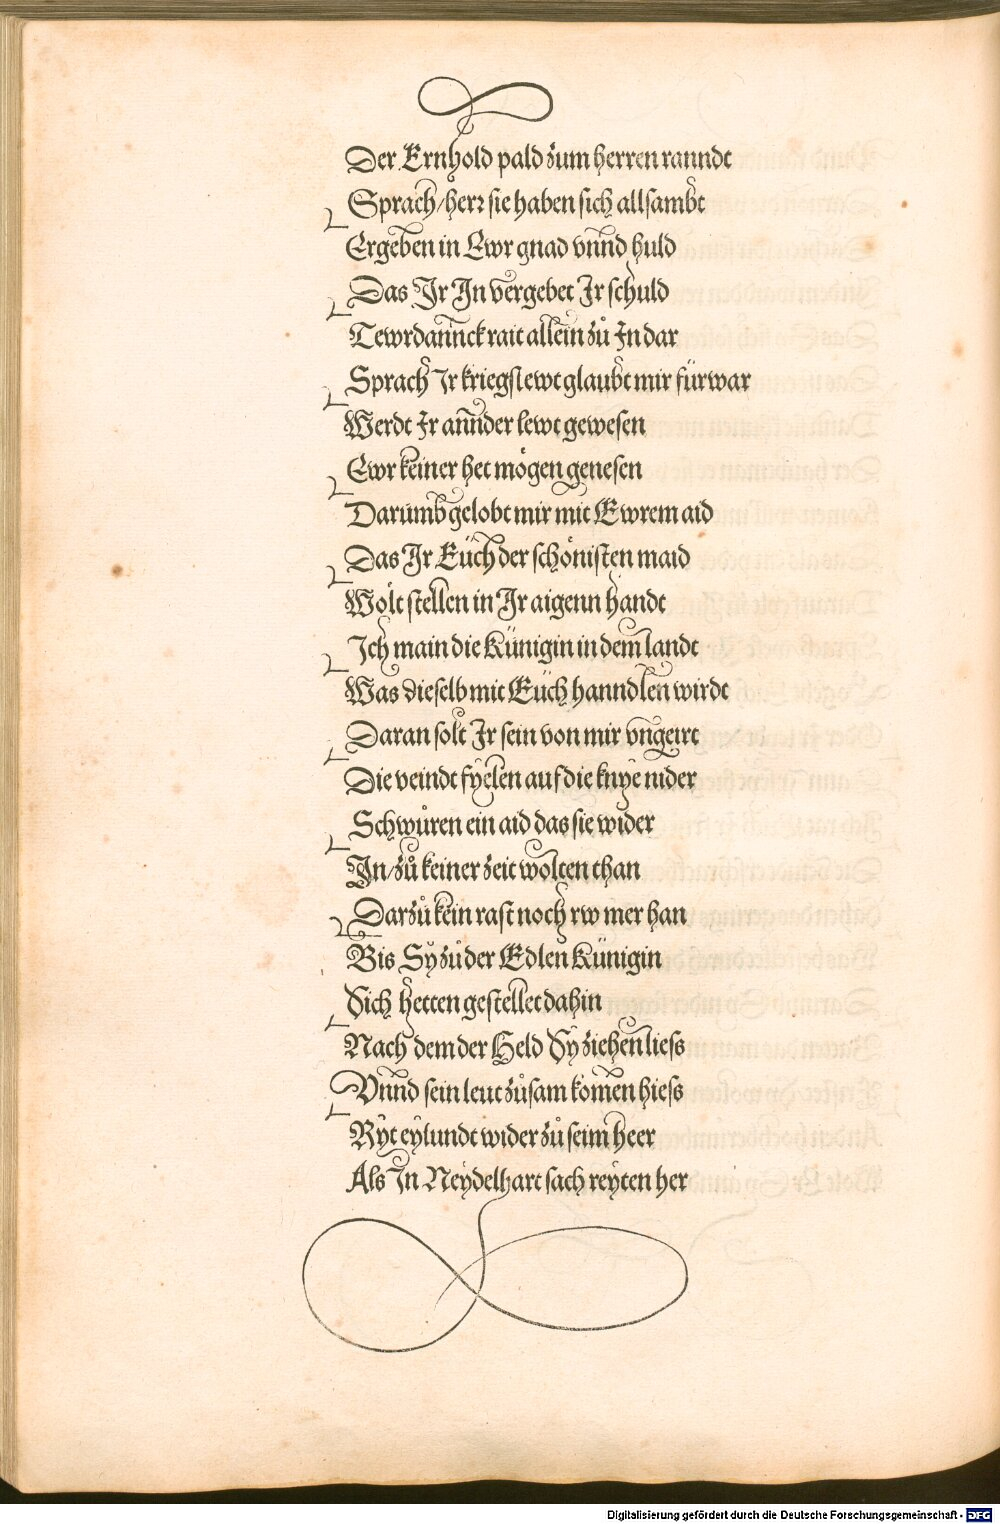 Der Ernhold pald zum herren ranndt
Sprach/herr sie haben sich allsambt
Ergeben in Ewr gnad vnnd huld
Das Ir In vergebet Ir schuld
Tewrdannck rait allein zů In dar
Sprach Ir kriegslewt glaubt mir fürwar
Werdt Ir annder lewt gewesen
Ewr keiner het mögen genesen
Darumb gelobt mir mit Ewrem aid
Das Ir Euch der schönisten maid
Wölt stellen in Ir aigenn handt
Ich main die Künigin in dem landt
Was dieselb mit Euch hanndlen wirdt
Daran solt Ir sein von mir vngeirt
Die veindt fyelen auf die knye nider
Schwůren ein aid das sie wider
In/zů keiner zeit wolten than
Darzů kein rast noch rw mer han
Bis Sy zů der Edlen Künigin
Sich hetten gestellet dahin
Nach dem der Held Sy ziehen liess
Vnnd sein leut zůsam komen hiess
Ryt eylundt wider zů seim heer
Als In Neydelhart sach reyten her
Digitalisierung gefördert durch die Deutsche Forschungsgemeinschaft - DFG